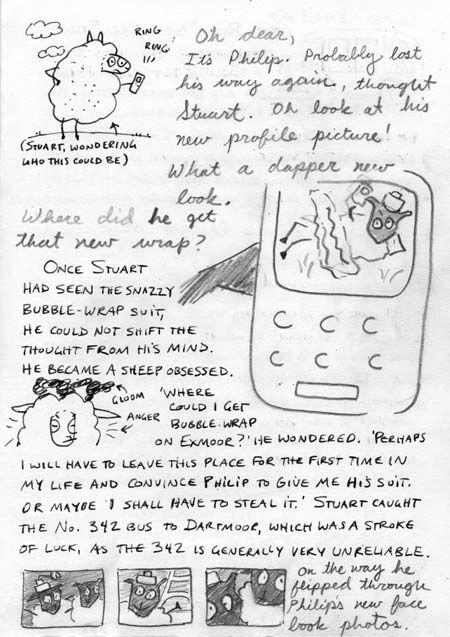 RING
RING
Oh dear,
It's Philip. Probably lost
his way again, thought
Stuart. Oh look at his
new profile picture!
What a dapper new
look.
(STUART, WONDERING
WHO THIS COULD BE)
Where did he get
that new wrap?
ONCE STUART
HAD SEEN THE SNAZZY
BUBBLE-WRAP SUIT,
HE COULD NOT SHIFT THE
THOUGHT FROM HIS MIND.
HE BECAME A SHEEP OBSESSED.
GLOOM
ANGER
'WHERE
COULD I GET
BUBBLE-WRAP
ON EXMOOR?' HE WONDERED. 'PERHAPS
I WILL HAVE TO LEAVE THIS PLACE FOR THE FIRST TIME IN
MY LIFE AND CONVINCE PHILIP TO GIVE ME HIS SUIT.
OR MAYBE I SHALL HAVE TO STEAL IT.' STUART CAUGHT
THE No. 342 BUS TO DARTMOOR, WHICH WAS A STROKE
OF LUCK, AS THE 342 IS GENERALLY VERY UNRELIABLE.
on the way he
flipped through
Philip's new face
book photos.